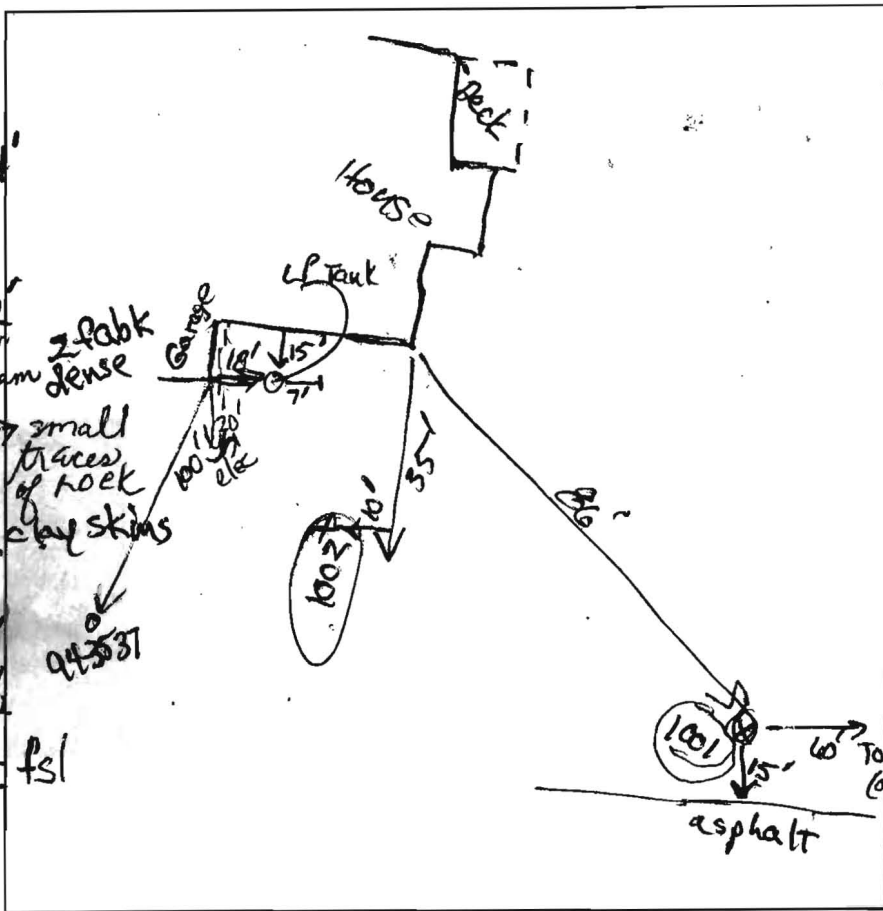 Deck
House
LP Tank
Garage
2fabk
dense
18'
15'
7'
small
traces
of rock
clay skins
20'
elec
100'
35'
10'
1002
943537
fsl
1001
60'
15'
asphalt